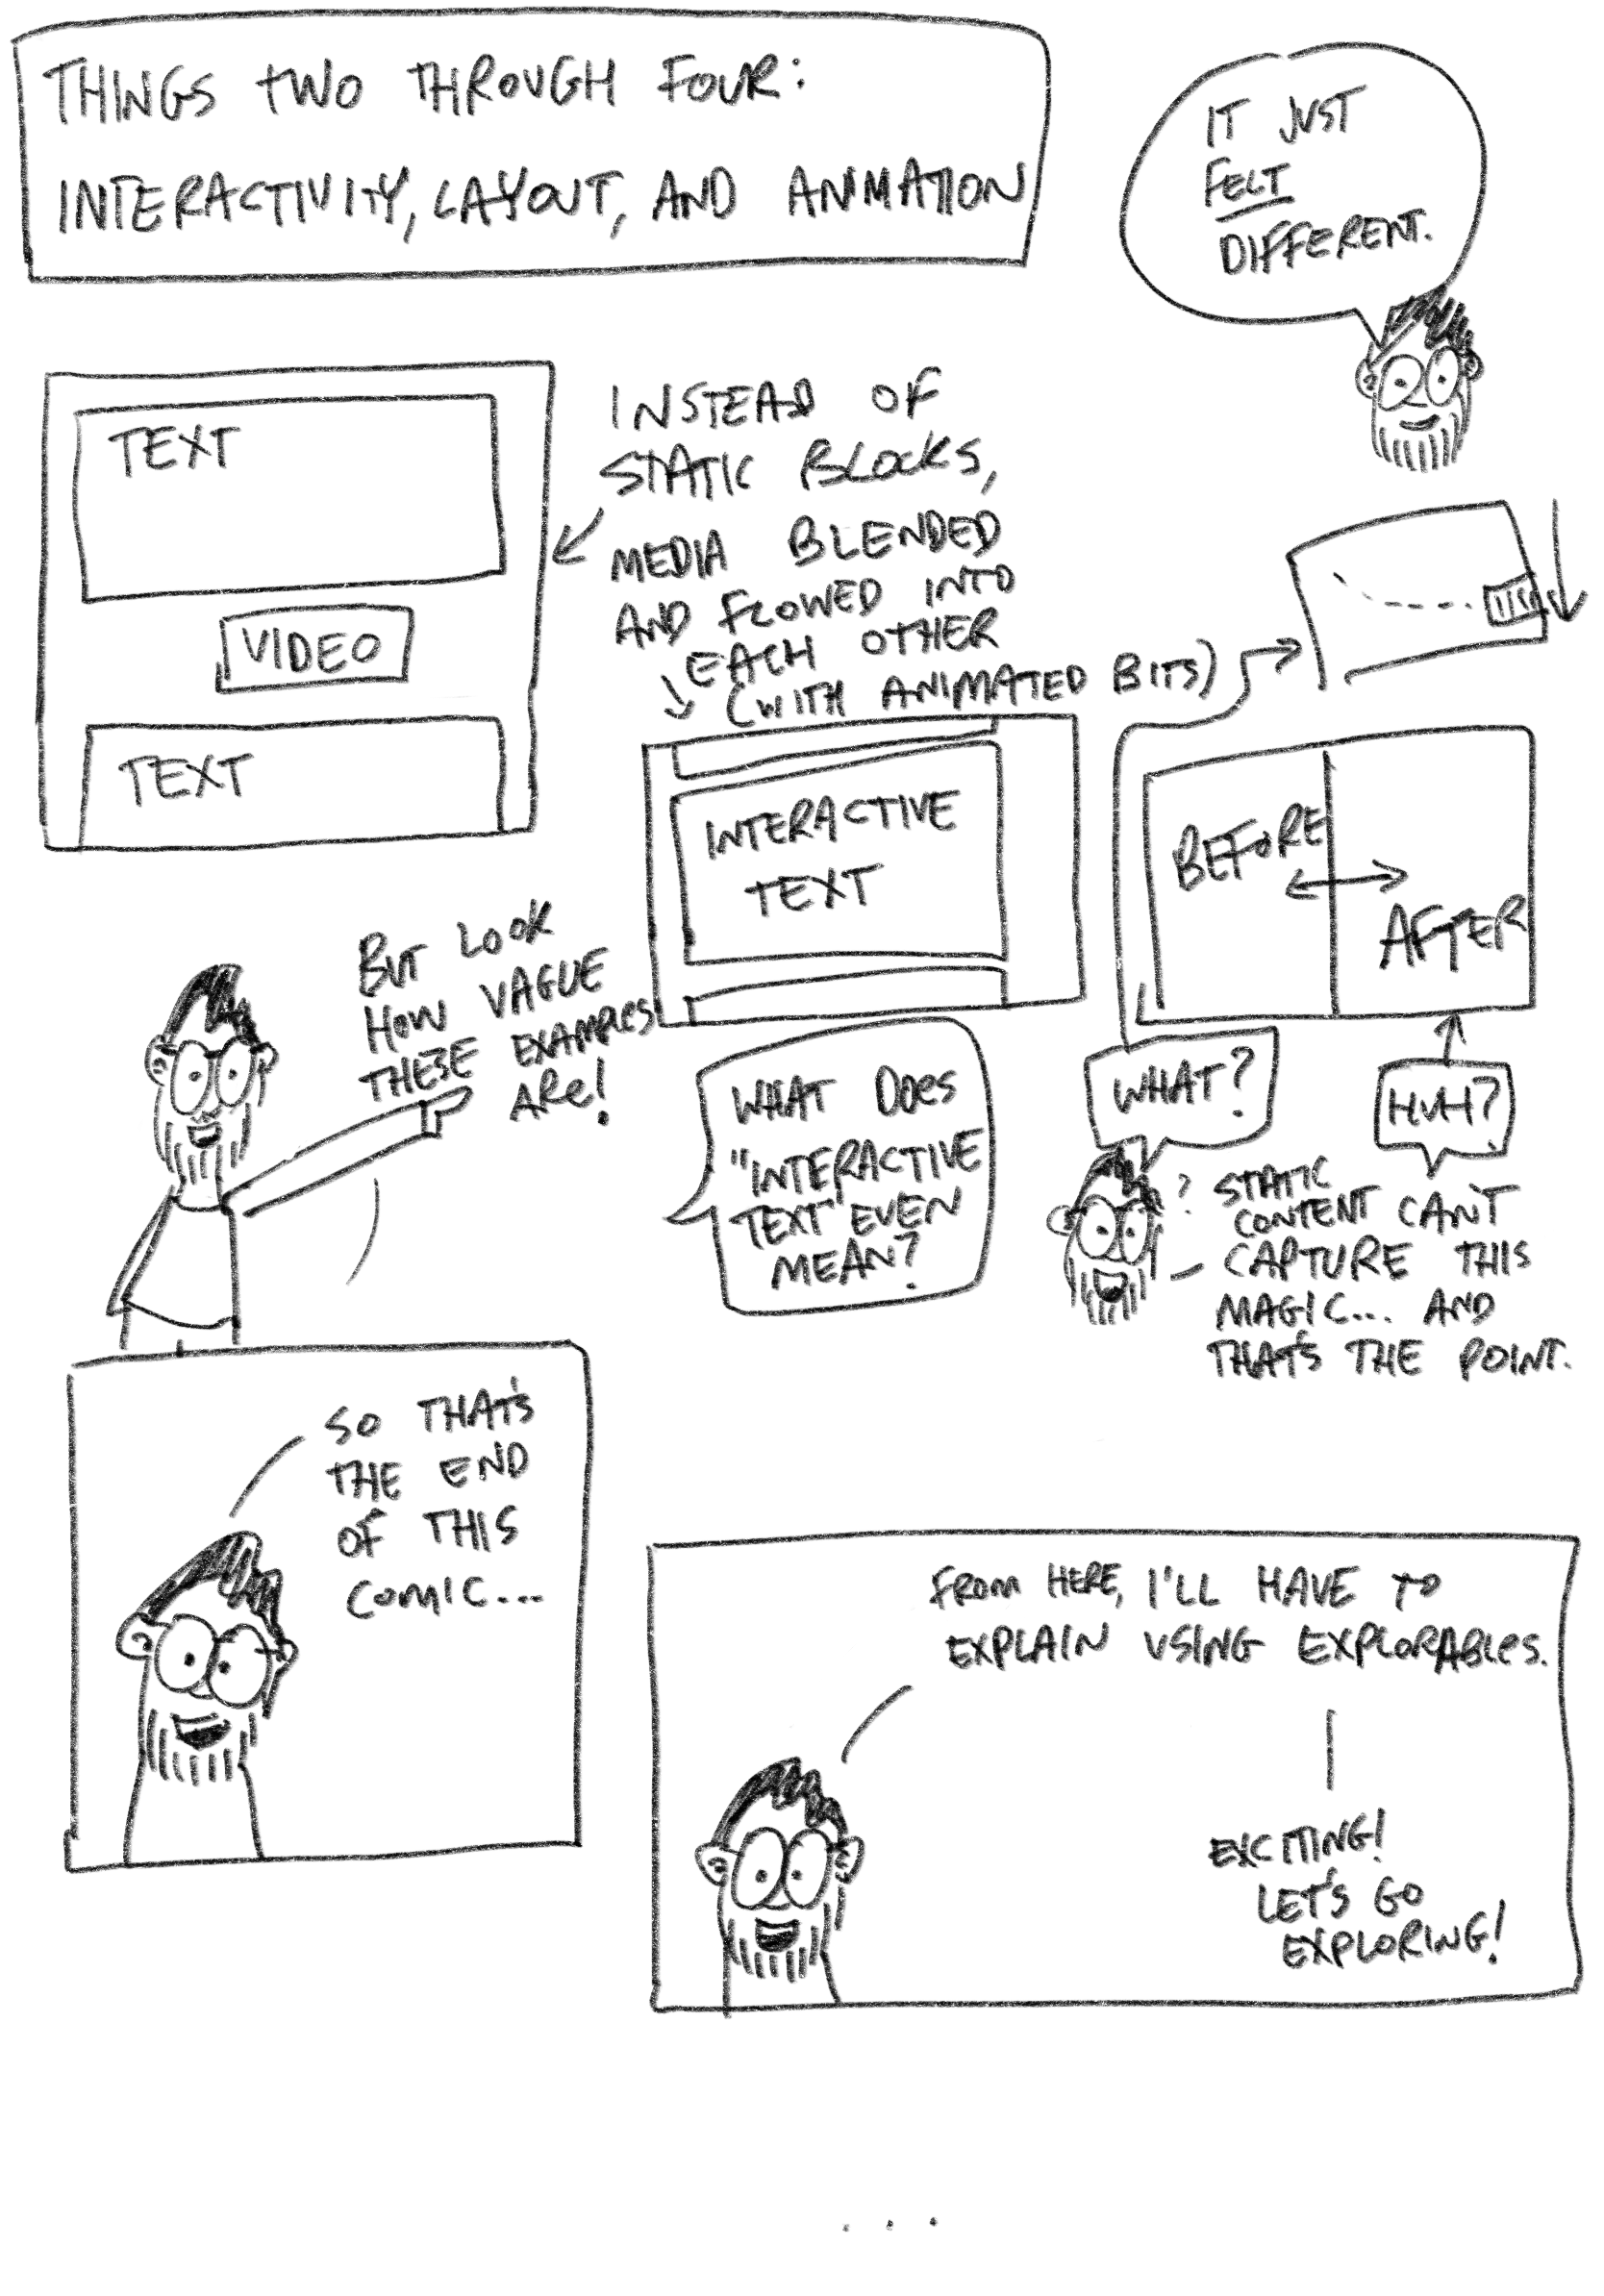 THINGS TWO THROUGH FOUR:
INTERACTIVITY, LAYOUT, AND ANIMATION
IT JUST
FELT
DIFFERENT.
TEXT
VIDEO
TEXT
INSTEAD OF
STATIC BLOCKS,
MEDIA BLENDED
AND FLOWED INTO
EACH OTHER
(WITH ANIMATED BITS)
INTERACTIVE
TEXT
BEFORE
AFTER
BUT LOOK
HOW VAGUE
THESE EXAMPLES
ARE!
WHAT DOES
"INTERACTIVE
TEXT" EVEN
MEAN?
WHAT?
HUH?
?
STATIC
CONTENT CAN'T
CAPTURE THIS
MAGIC... AND
THAT'S THE POINT.
SO THAT'S
THE END
OF THIS
COMIC...
FROM HERE, I'LL HAVE TO
EXPLAIN USING EXPLORABLES.
EXCITING!
LET'S GO
EXPLORING!
...